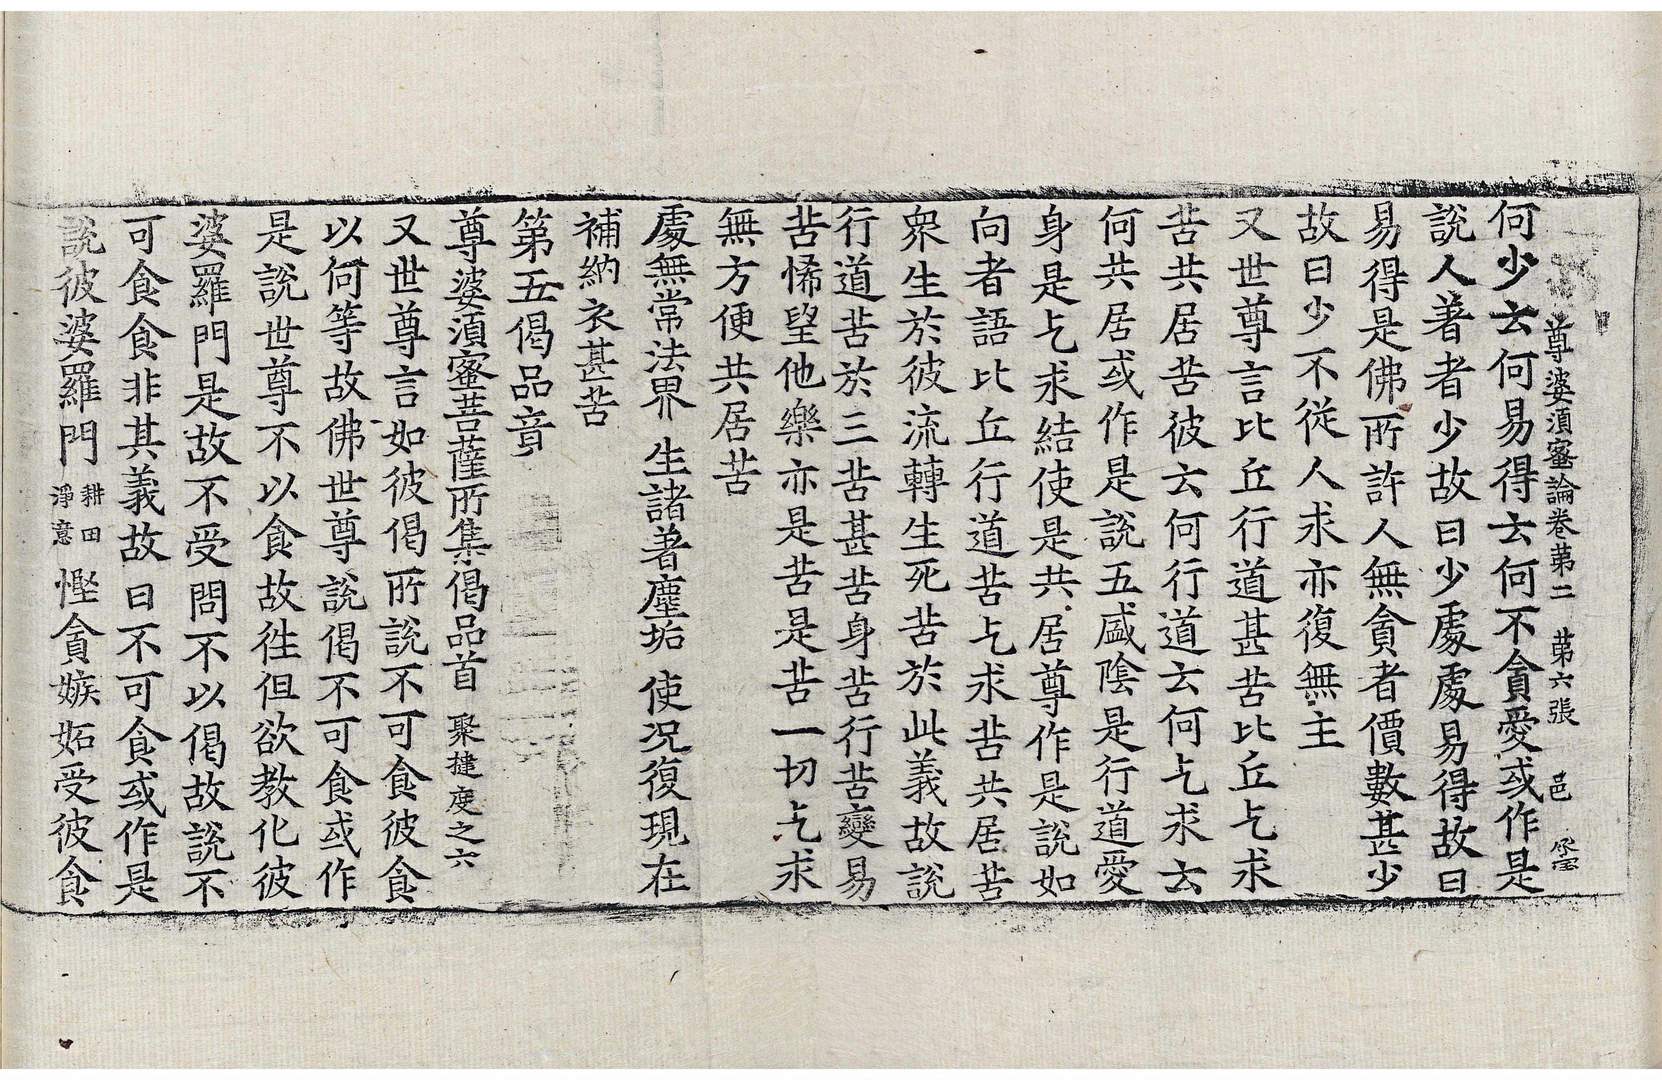 尊婆須蜜論卷苐二　苐六張　邑
何少云何易得云何不貪愛或作是
說人著者少故曰少處處易得故曰
易得是佛所許人無貪者價數甚少
故曰少不從人求亦復無主
又世尊言比丘行道甚苦比丘乞求
苦共居苦彼云何行道云何乞求云
何共居或作是說五盛陰是行道愛
身是乞求結使是共居尊作是說如
向者語比丘行道苦乞求苦共居苦
衆生於彼流轉生死苦於此義故說
行道苦於三苦甚苦身苦行苦變易
苦悕望他樂亦是苦是苦一切乞求
無方便共居苦
處無常法界　生諸著塵垢　使况復現在
補納衣甚苦
第五偈品竟
尊婆須蜜菩薩所集偈品首　聚揵度之六
又世尊言如彼偈所說不可食彼食
以何等故佛世尊說偈不可食或作
是說世尊不以食故往但欲教化彼
婆羅門是故不受問不以偈故說不
可食食非其義故曰不可食或作是
說彼婆羅門耕田淨意慳貪嫉妬受彼食